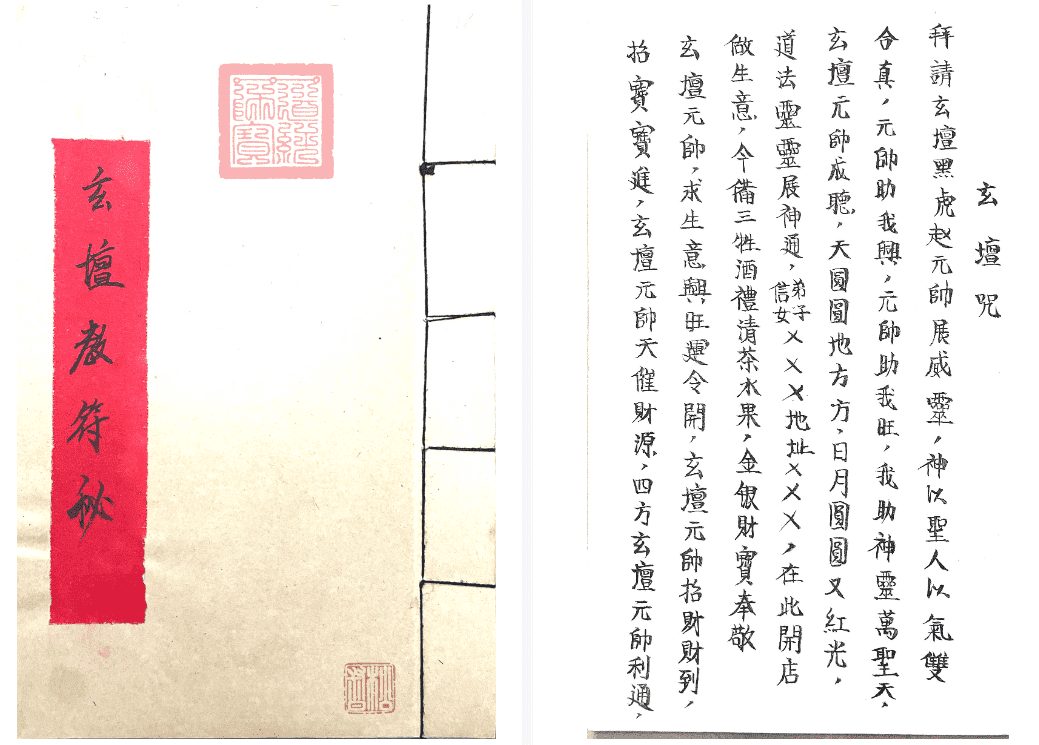 玄壇教符秘
道經師寶
玄壇咒
拜請玄壇黑虎赵元帥展威靈，神以聖人以氣雙
合真，元帥助我興，元帥助我旺，我助神靈萬聖天，
玄壇元帥成聽，天圓圓地方方，日月圓圓又紅光，
道法靈靈展神通，弟子信女×××地址×××，在此開店
做生意，今備三牲酒禮清茶水果，金银財寶奉敬
玄壇元帥，求生意興旺運令開，玄壇元帥招財財到，
招寶寶進，玄壇元帥天催財源，四方玄壇元帥利通，